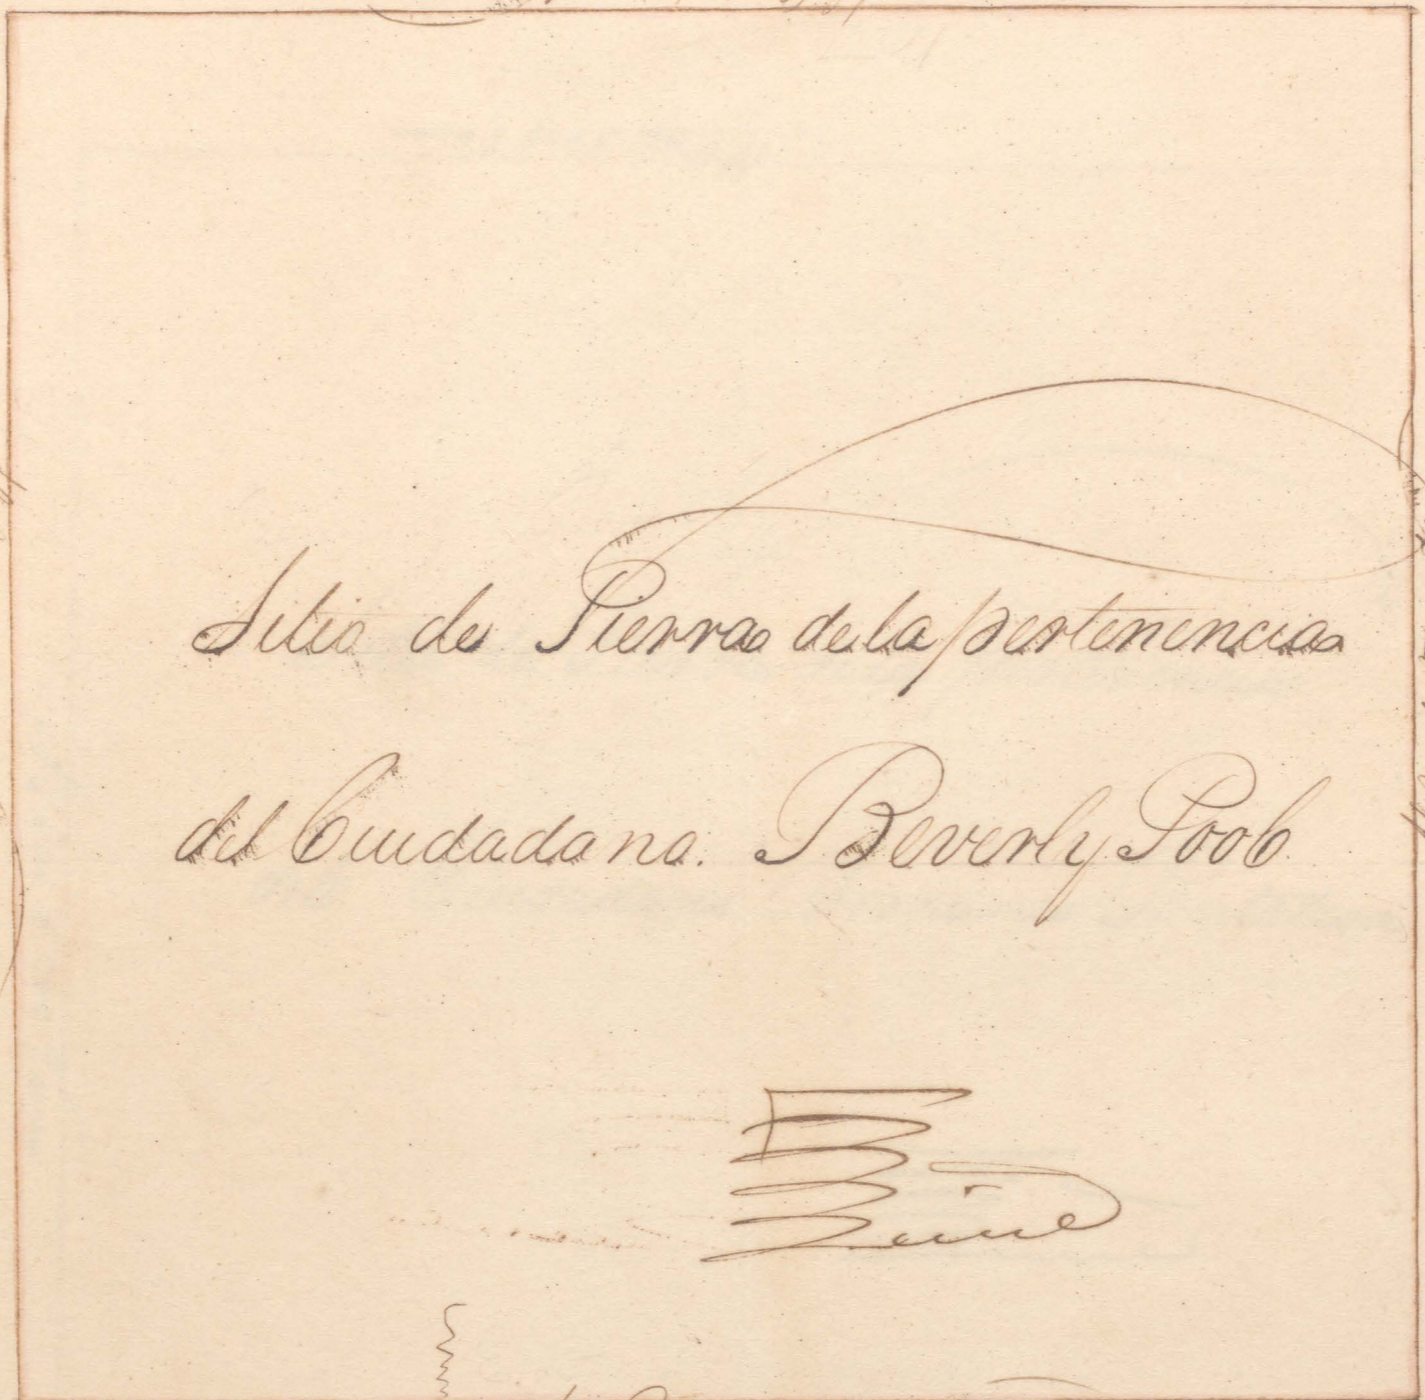 Sitio de Tierra de la pertenencia
del Ciudadano. Beverly Poob